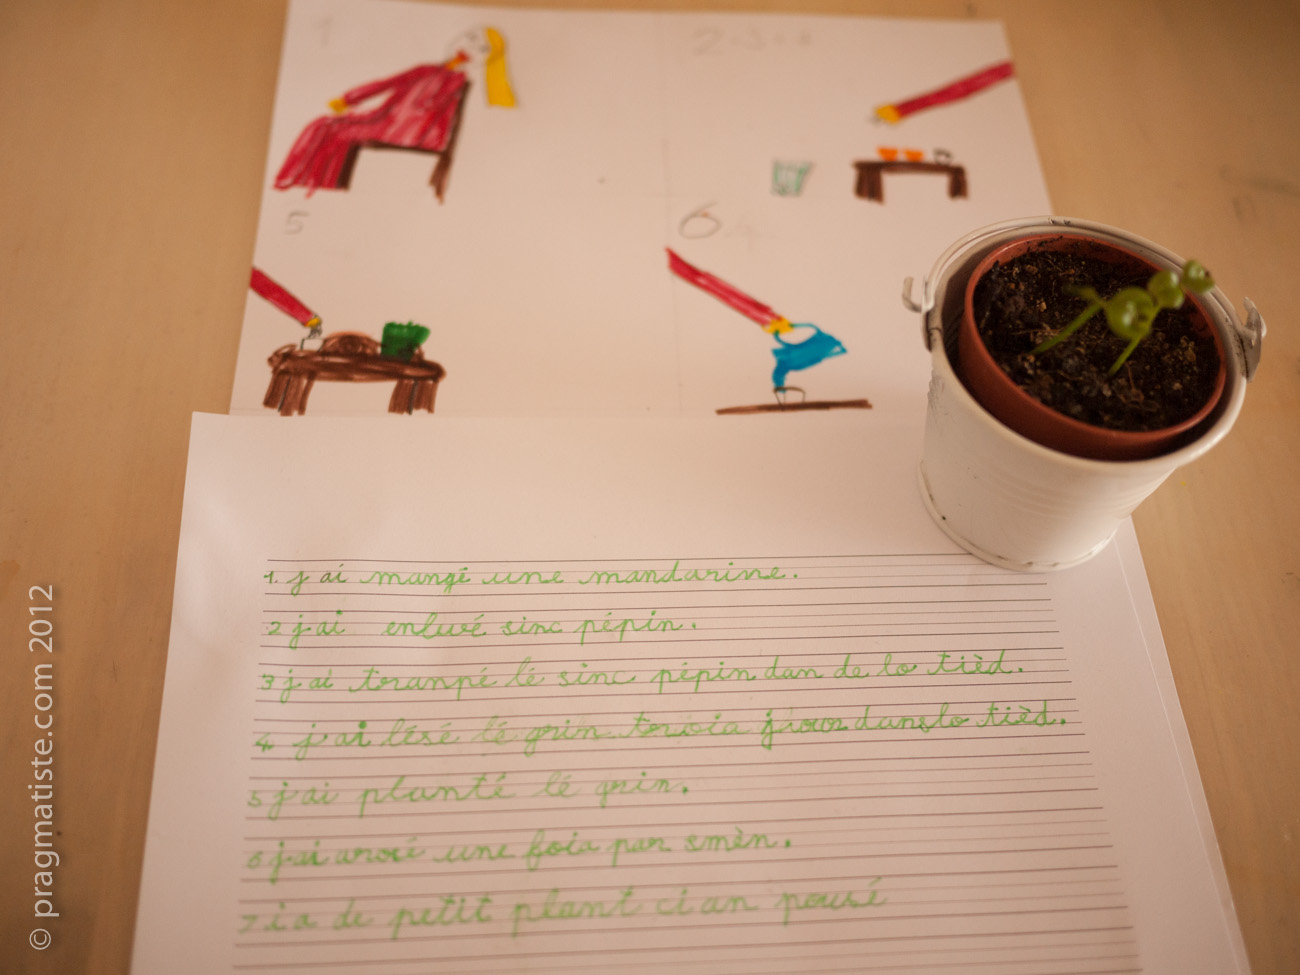 1
2.3.4
5
6
1. j'ai mangé une mandarine.
2 j'ai enluvé sinc pépin.
3 j'ai tranpé lé sinc pépin dan de lo tièd.
4. j'ai lésé lé grin troia jour dans lo tièd.
5 j'ai planté lé grin.
6 j'ai arosé une foia par smèn.
7 i a de petit plant ci an pousé
© pragmatiste.com 2012